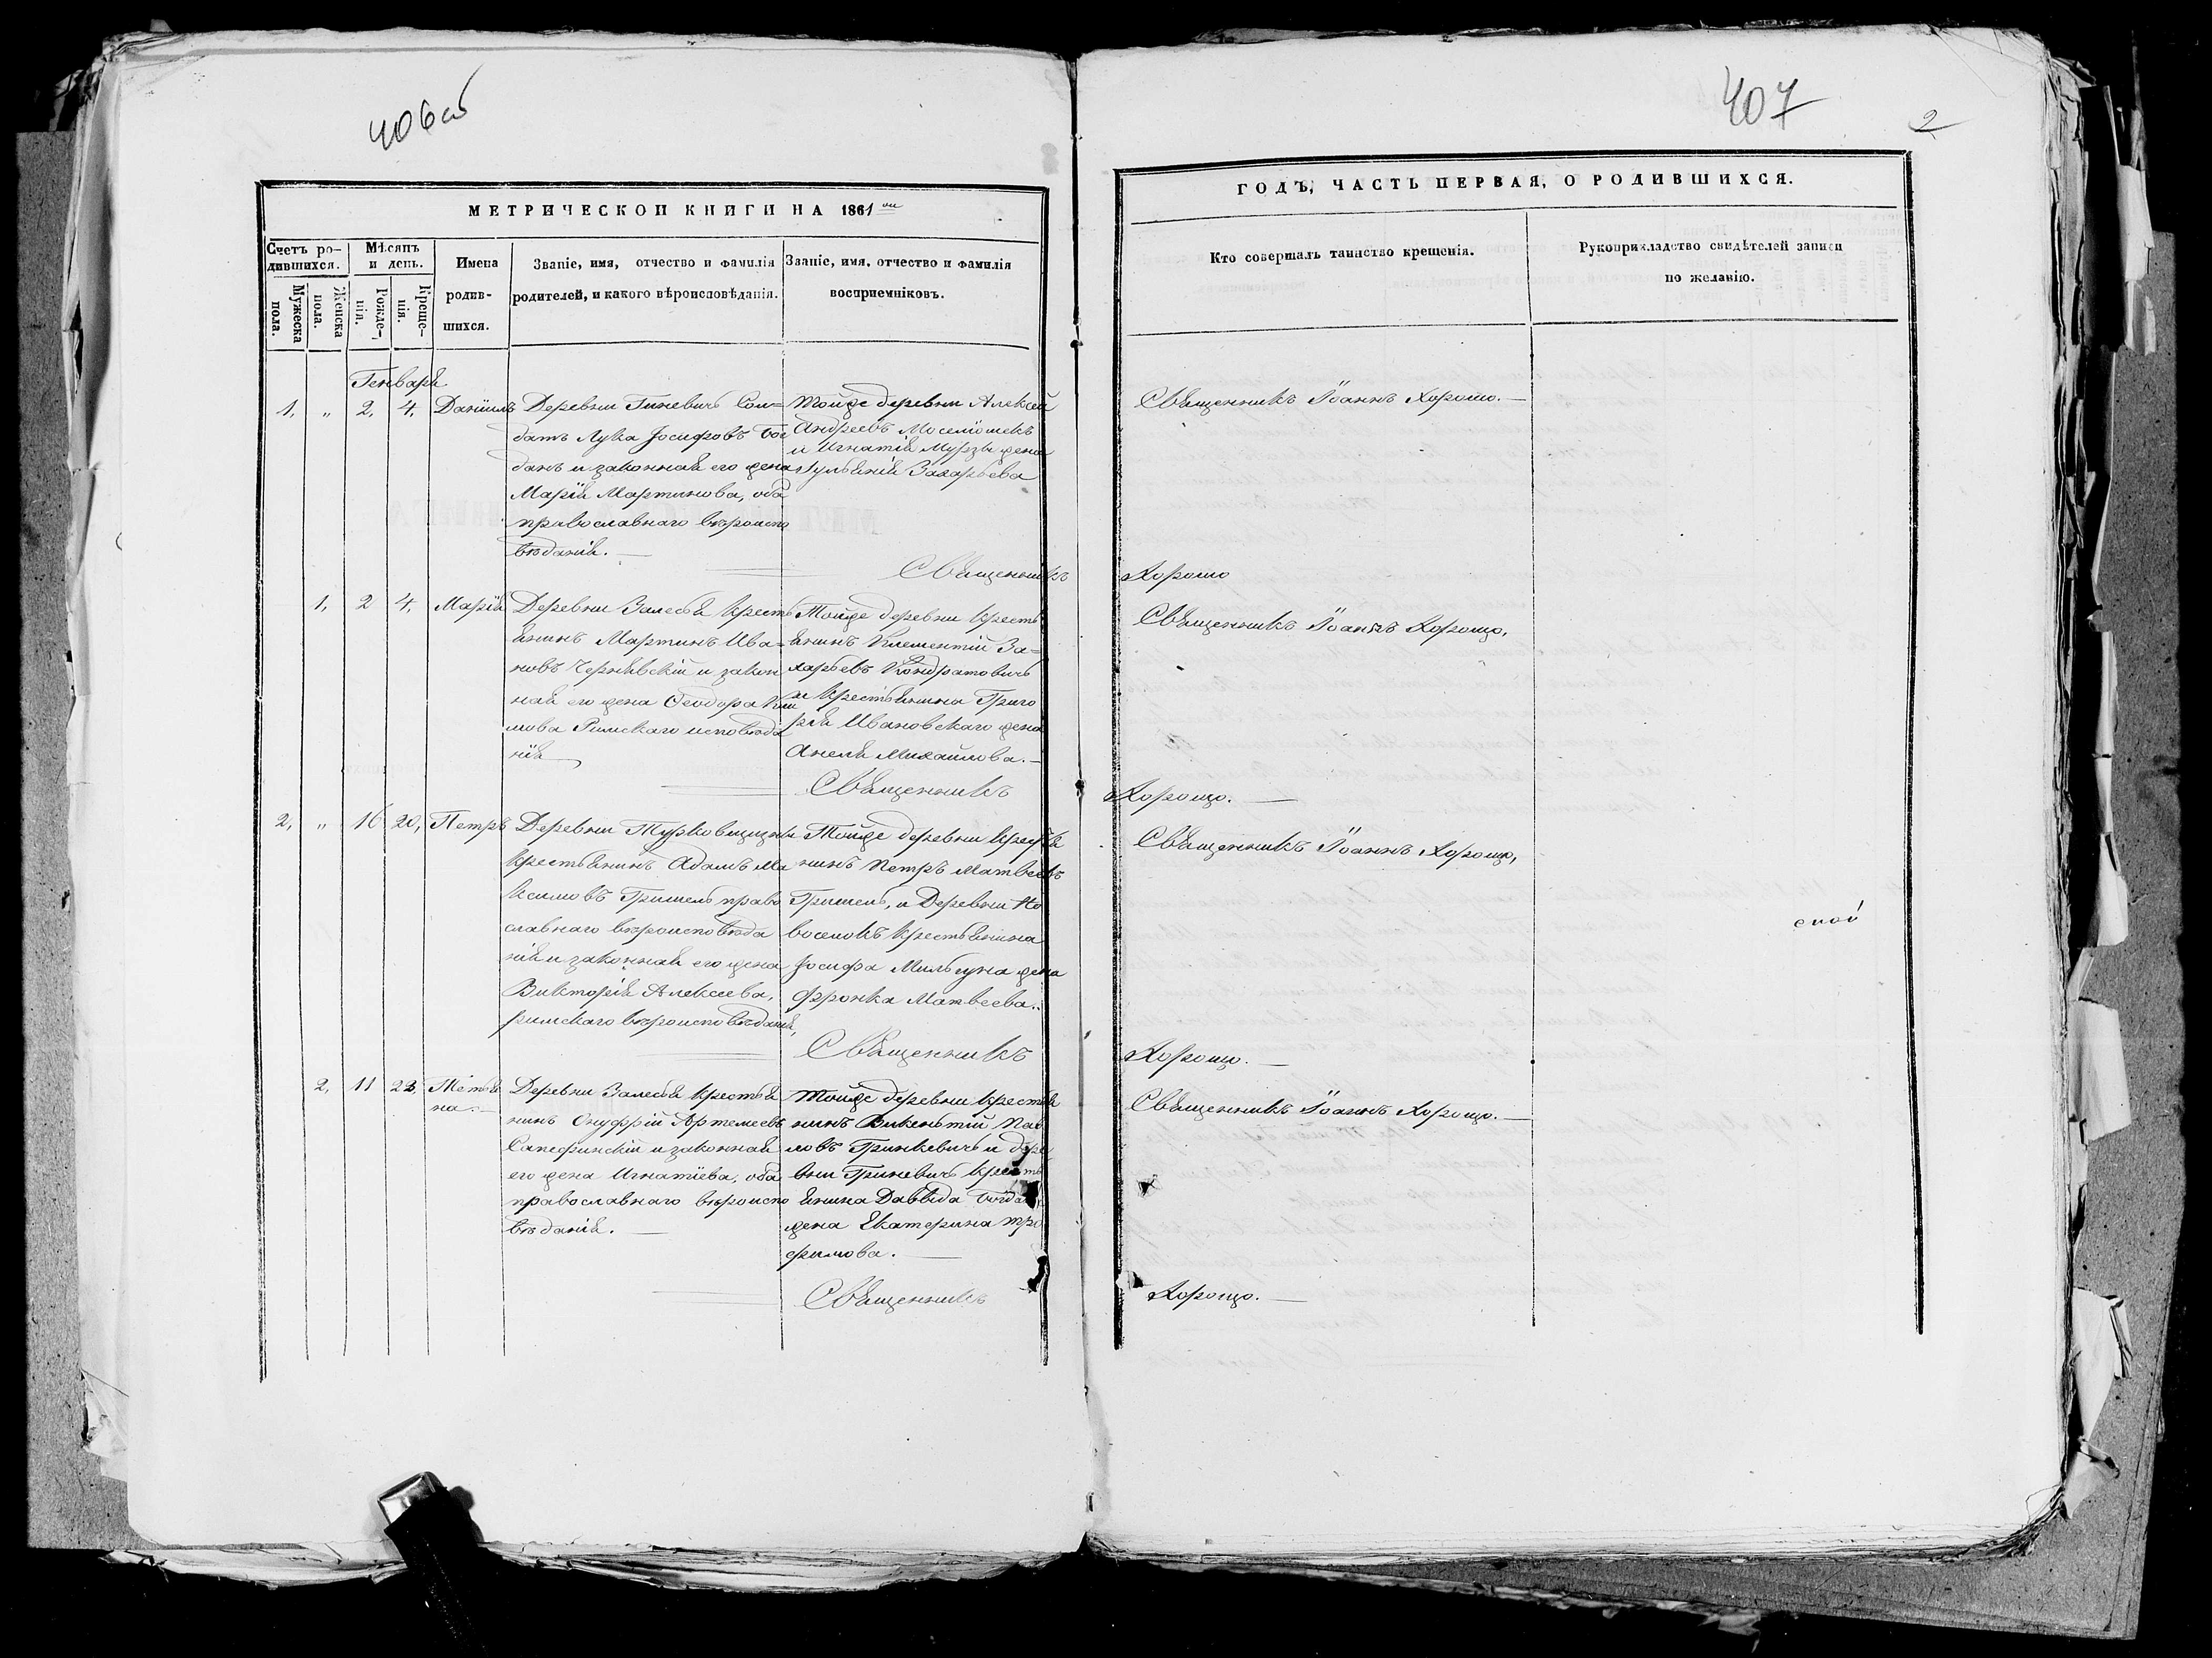 406об
МЕТРИЧЕСКОЙ КНИГИ НА 1861ый
Счетъ ро-
дившихся.
Мѣсяцъ
и день.
Имена
родив-
шихся.
Званіе, имя, отчество и фамилія
родителей, и какого вѣроисповѣданія.
Званіе, имя, отчество и фамилія
восприемніковъ.
Мужеска
пола.
Женска
пола.
Рожде-
нія.
Креще-
нія.
Генваря
1, „ 2, 4, Даніилъ
Деревни Гиневичь Сол=
датъ Лука Іосифовъ Бог
данъ и законная его жена
Марія Мартинова, оба
православнаго вѣроиспо
вѣданія.
Тойже деревни Алексей
Андреевъ
и Игнатія Мурзы жена
Захарьева
Священникъ
1, 2 4, Марія
Деревни Залесья Кресть
янинъ Мартинъ Ива=
новъ Чернявскій и закон
ная его жена Феодора Кли
мова Римскаго исповѣда
нія
Тойже деревни кресть
янинъ Климентій За=
харьевъ Кондратовичь
и крестьянина Григо
рія Ивановскаго жена
Анеля Михайлова.
Священникъ
2, „ 16 20, Петръ
Деревни
Крестьянинъ Адамъ Ма
ксимовъ Гришель право
славнаго вѣроисповѣда
нія и законная его жена
Викторія Алексеева,
римскаго вѣроисповѣданія,
Тойже деревни крестья
нинъ Петръ Матвеевъ
Гришель, и Деревни Но
воселокъ крестьянина
Іосифа Мильгуна жена
Франка Матвеева.
Священникъ
2, 11 22, Тетья
на.
Деревни Залесья крестья
нинъ Онуфрій Артемеевъ
Сапефинскій и законная
его жена Игнатіева, оба
православнаго вѣроиспо
вѣданія.
Тойже деревни крестья
нинъ Викентій Пав
ловъ Гринкевичь и дере
вни Гриневичь кресть
янина Давида Богдан
жена Екатерина Тро
фимова.
Священникъ
407
2
ГОДЪ, ЧАСТЬ ПЕРВАЯ, О РОДИВШИХСЯ.
Кто совершалъ таинство крещенія.
Рукоприкладство свидѣтелей записи
по желанію.
Священникъ Іоаннъ Хорошо.
Хорошо
Священникъ Іоаннъ Хорощо,
Хорощо.
Священникъ Іоаннъ Хорощо,
Хорощо.
Священникъ Іоаннъ Хорощо.
Хорощо.